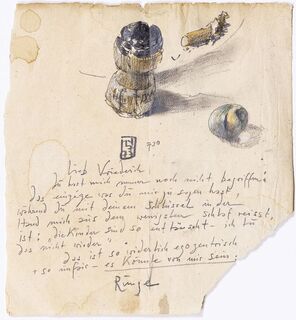 730
Lieb Friederich.
Du hast mich immer noch nicht begriffen.
Das einzige was Du mir zu sagen hast
während Du mit deinem Schlüssel in der
Hand mich aus dem wenigsten Schlaf reisst,
ist: "die Kinder sind so enttäuscht - ich tu
das nicht wieder"
das ist so widerlich egozentrisch
+ so unfair - es könnte von mir sein.